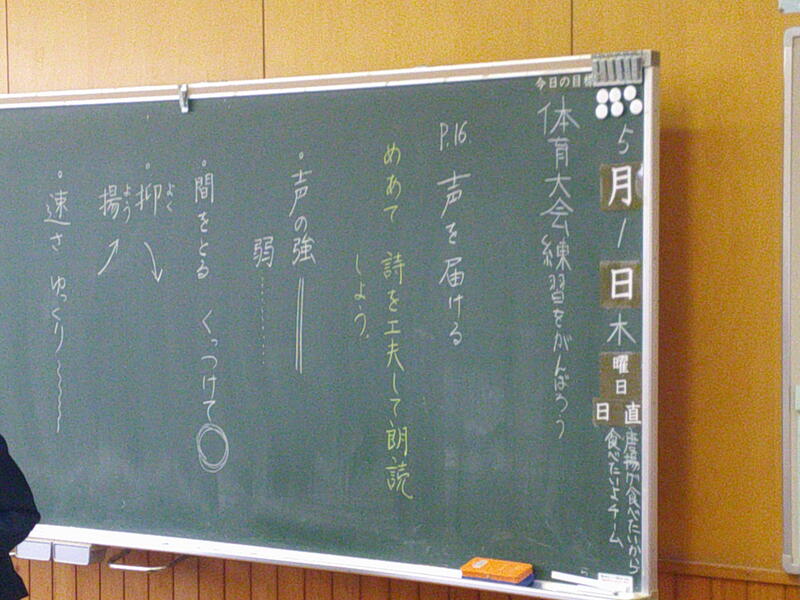 今日の目標
5月1日木曜日
日直
唐揚が食べたいから
食べたいよチーム
体育大会練習をがんばろう
P.16 声を届ける
めあて 詩を工夫して朗読
しよう。
・声の強
弱
・間をとる くっつけて
・抑よく
揚よう
・速さ ゆっくり